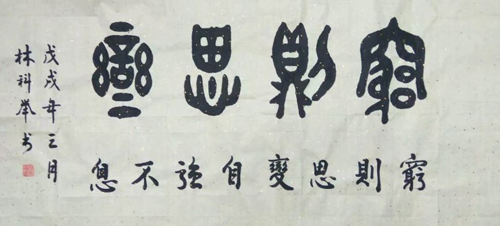 窮則思變
窮則思變自強不息
戊戌年三月
林科举书